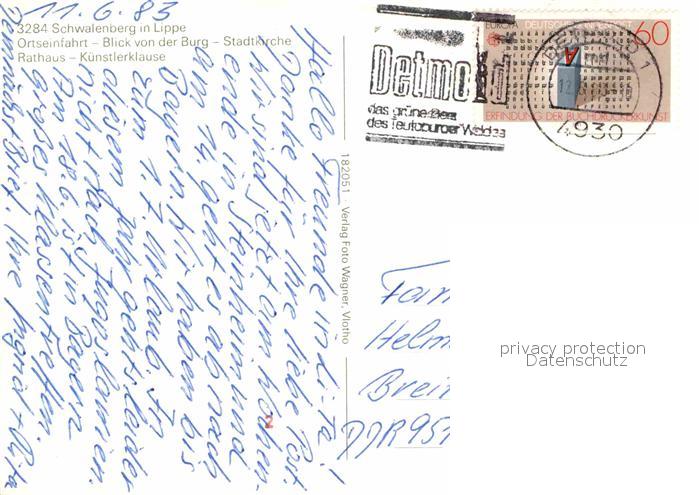 11.6.83
3284 Schwalenberg in Lippe
Ortseinfahrt – Blick von der Burg – Stadtkirche
Rathaus – Künstlerklause
Hallo Freunde in
Danke für Ihre liebe Post.
Wir sind jetzt am Wochen-
ende in Steinheim und
am 14. geht es ab nach
Bayern. Wir haben bis
zum 1.7. Urlaub. In
diesem Jahr geht's leider
nicht nach Jugoslawien.
Am 18.6. ist in Bayern
großes Klassentreffen.
Demnächst Brief. Ihre Ingrid + Rita
182051 · Verlag Foto Wagner, Vlotho
Detmold
das grüne Herz
des Teutoburger Waldes
EUROPA DEUTSCHE BUNDESPOST
60
A
ERFINDUNG DER BUCHDRUCKERKUNST
DETMOLD 1
4930
Fam
Helm
Brei
DDR 95
privacy protection
Datenschutz